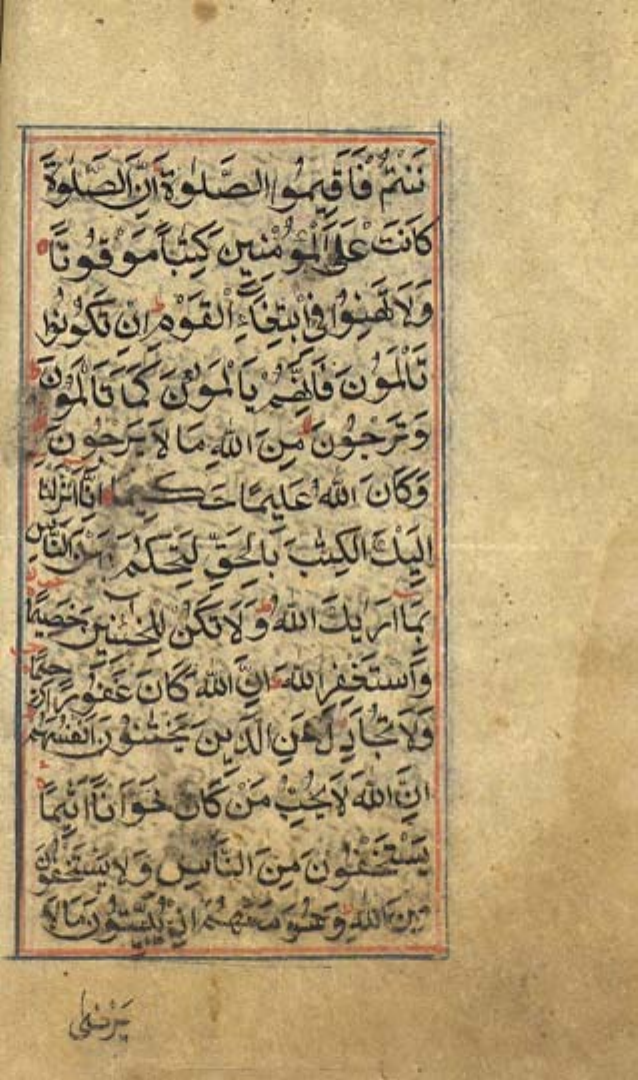 نَنْتُمْ فَاَقِيمُوا الصَّلٰوةَ اِنَّ الصَّلٰوةَ
كَانَتْ عَلَى الْمُؤْمِنِينَ كِتٰبًا مَوْقُوتًا
وَلَا تَهِنُوا فِى ابْتِغَاءِ الْقَوْمِ اِنْ تَكُونُوا
تَالَمُونَ فَاِنَّهُمْ يَالَمُونَ كَمَا تَالَمُونَ
وَتَرْجُونَ مِنَ اللّٰهِ مَا لَا يَرْجُونَ
وَكَانَ اللّٰهُ عَلِيمًا حَكِيمًا اِنَّا اَنْزَلْنَا
اِلَيْكَ الْكِتٰبَ بِالْحَقِّ لِتَحْكُمَ بَيْنَ النَّاسِ
بِمَا اَرٰيكَ اللّٰهُ وَلَا تَكُنْ لِلْخَائِنِينَ خَصِيمًا
وَاسْتَغْفِرِ اللّٰهَ اِنَّ اللّٰهَ كَانَ غَفُورًا رَحِيمًا
وَلَا تُجَادِلْ عَنِ الَّذِينَ يَخْتَانُونَ اَنْفُسَهُمْ
اِنَّ اللّٰهَ لَا يُحِبُّ مَنْ كَانَ خَوَّانًا اَثِيمًا
يَسْتَخْفُونَ مِنَ النَّاسِ وَلَا يَسْتَخْفُونَ
مِنَ اللّٰهِ وَهُوَ مَعَهُمْ اِذْ يُبَيِّتُونَ مَا لَا
يَرْضٰى